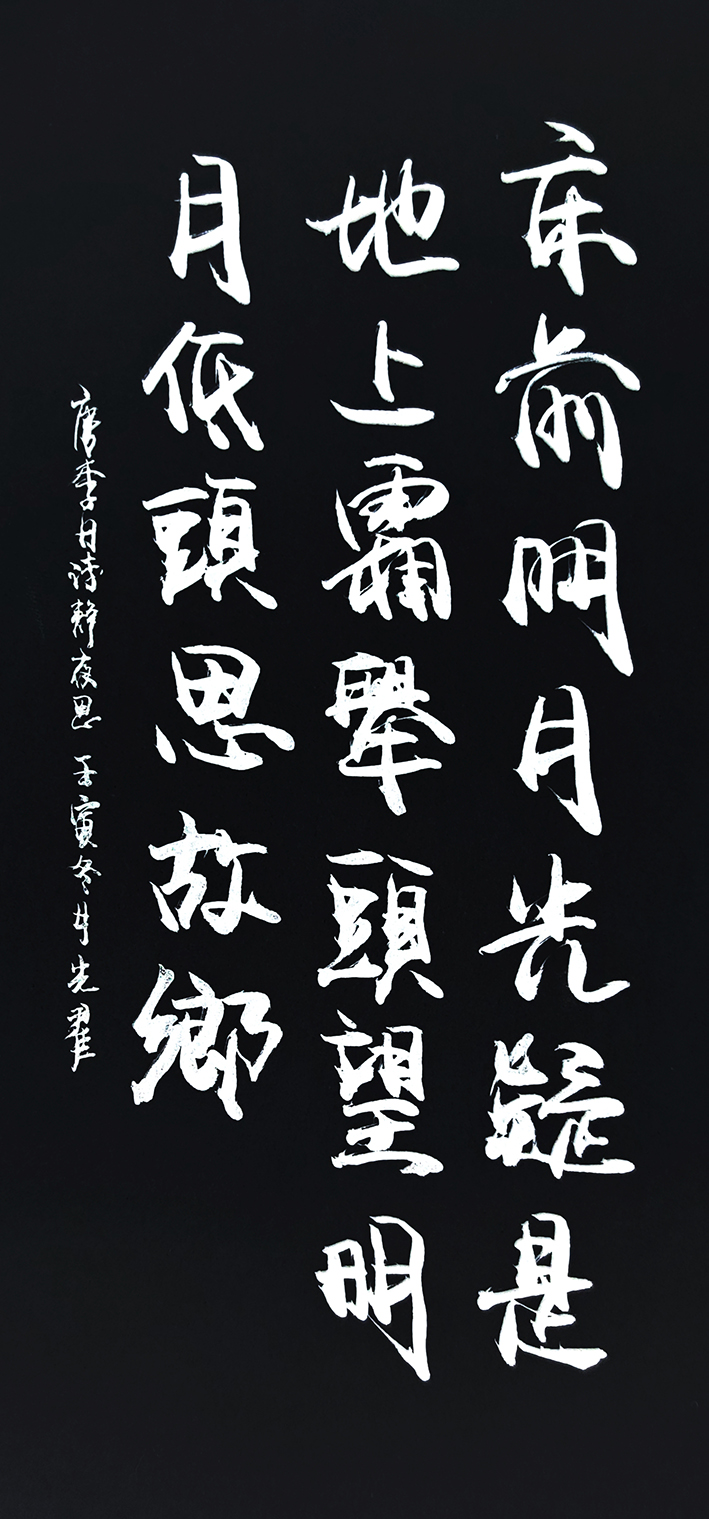 床前明月光疑是
地上霜舉頭望明
月低頭思故鄉
唐李白詩靜夜思 壬寅冬月先翟